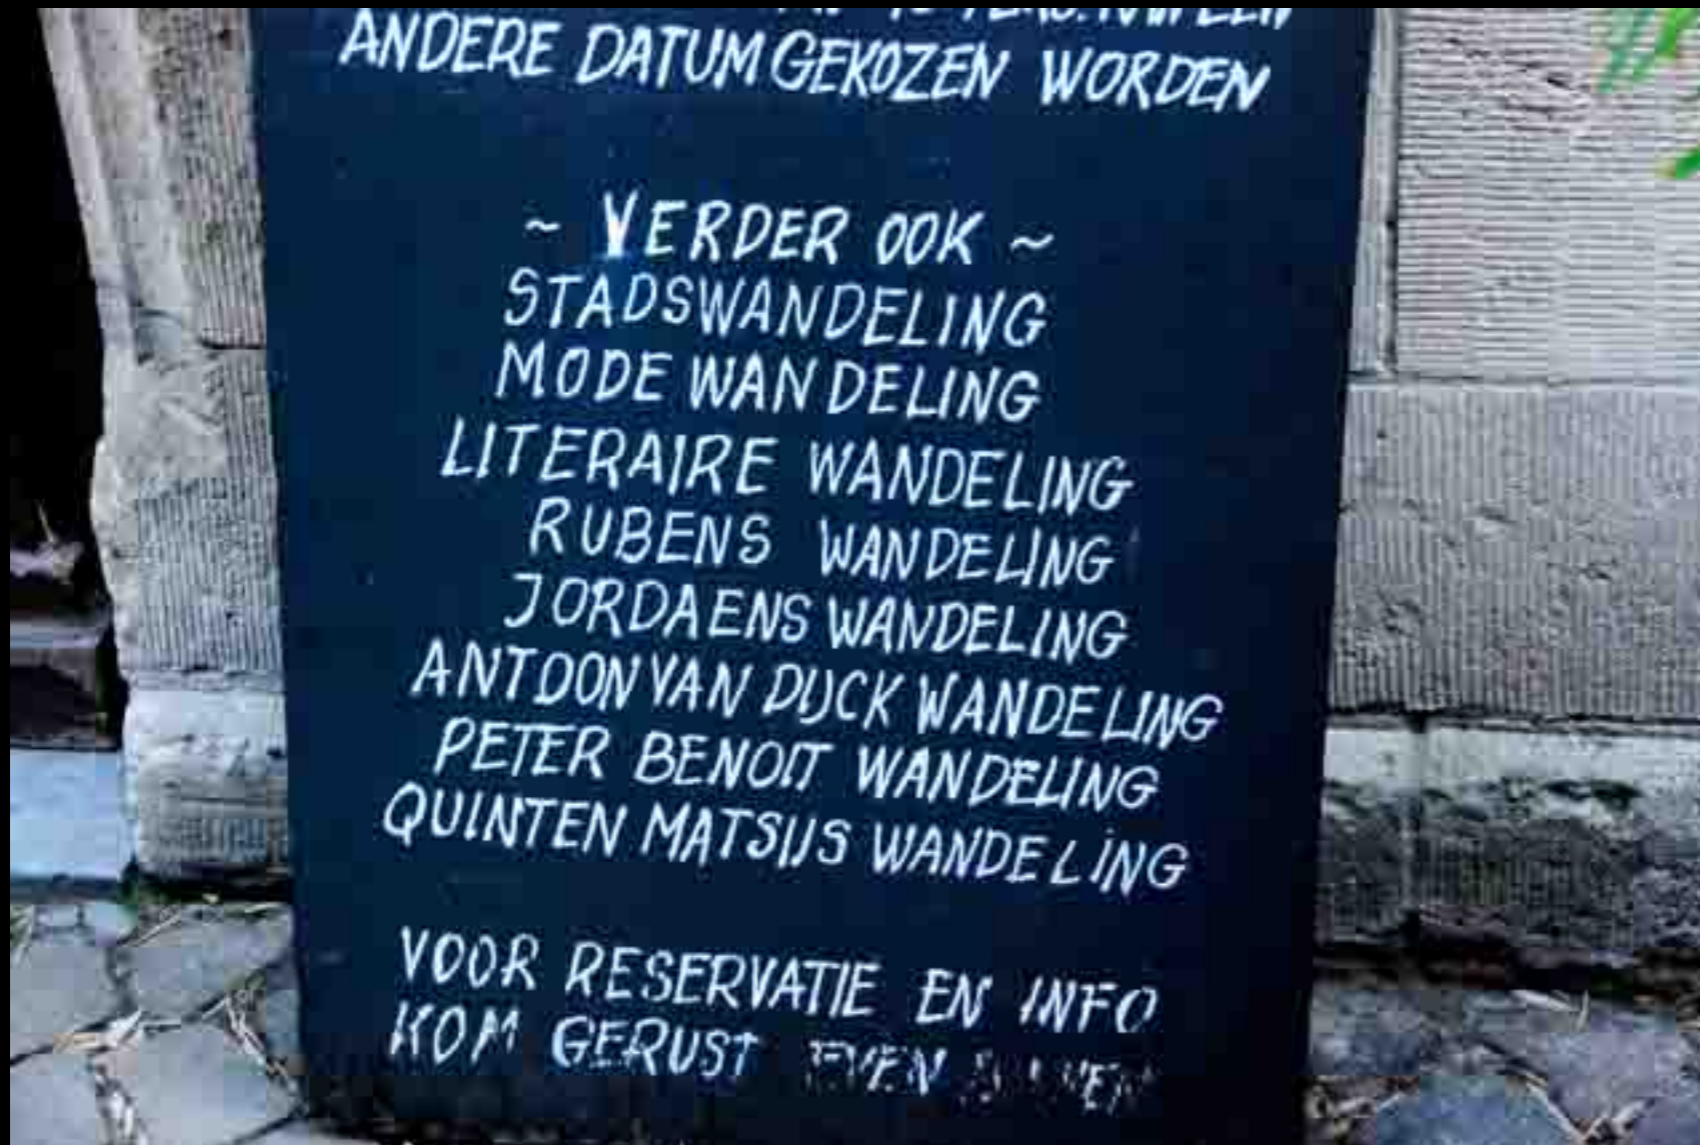 ANDERE DATUM GEKOZEN WORDEN
~ VERDER OOK ~
STADSWANDELING
MODE WANDELING
LITERAIRE WANDELING
RUBENS WANDELING
JORDAENS WANDELING
ANTOON VAN DIJCK WANDELING
PETER BENOIT WANDELING
QUINTEN MATSIJS WANDELING
VOOR RESERVATIE EN INFO
KOM GERUST EVEN